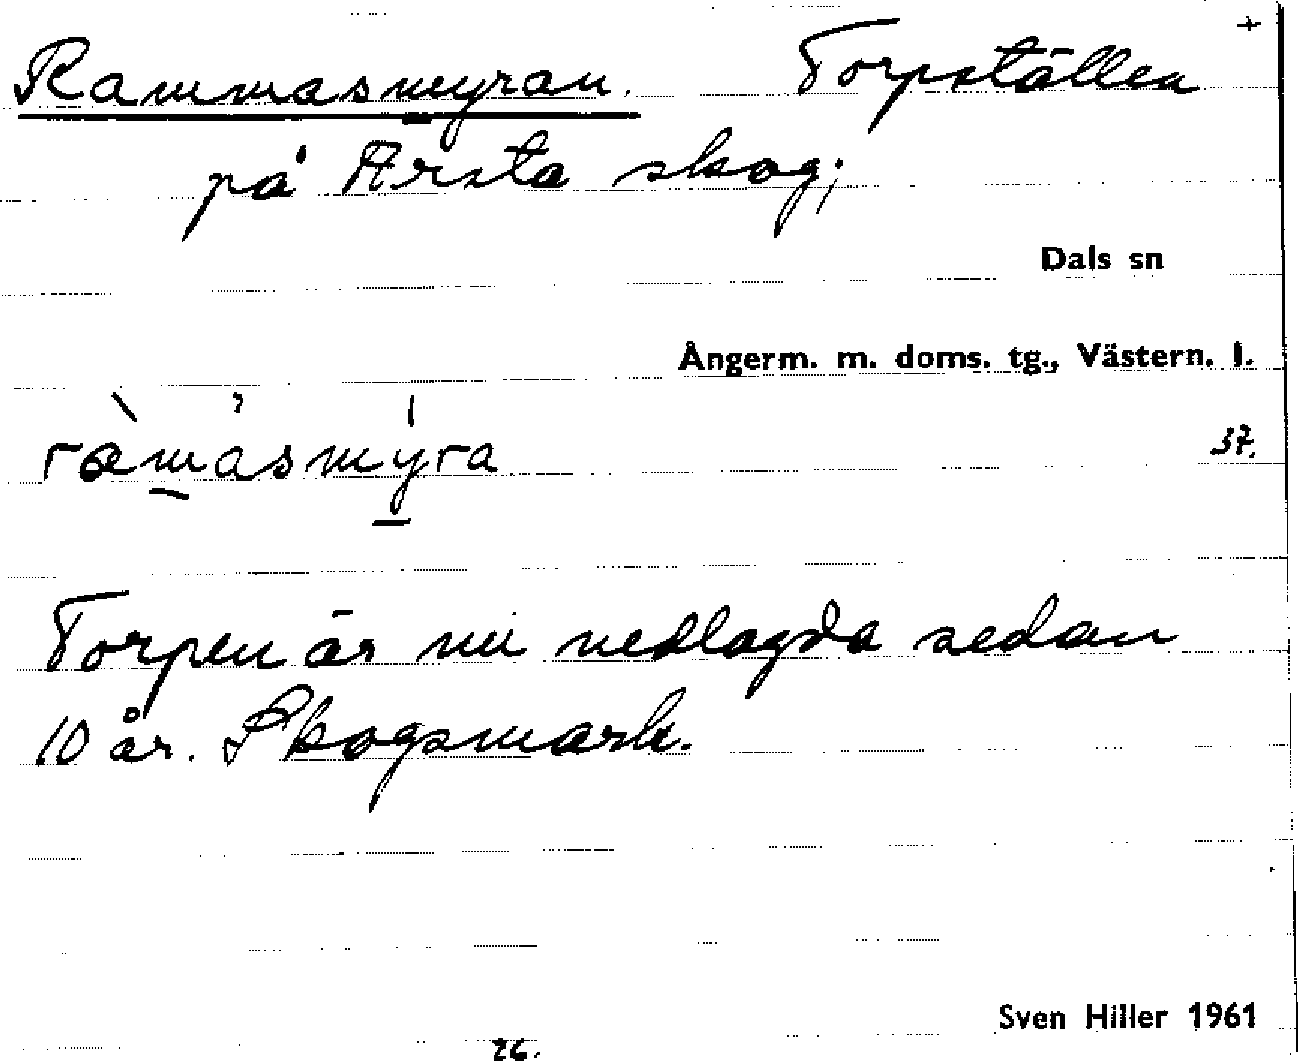 +
Rammasmyran. Torpställen
på Årsta skog;
Dals sn
Ångerm. m. doms. tg., Västern. l.
37.
Torpen är nu nedlagda sedan
10 år. Skogsmark.
Sven Hiller 1961
26.